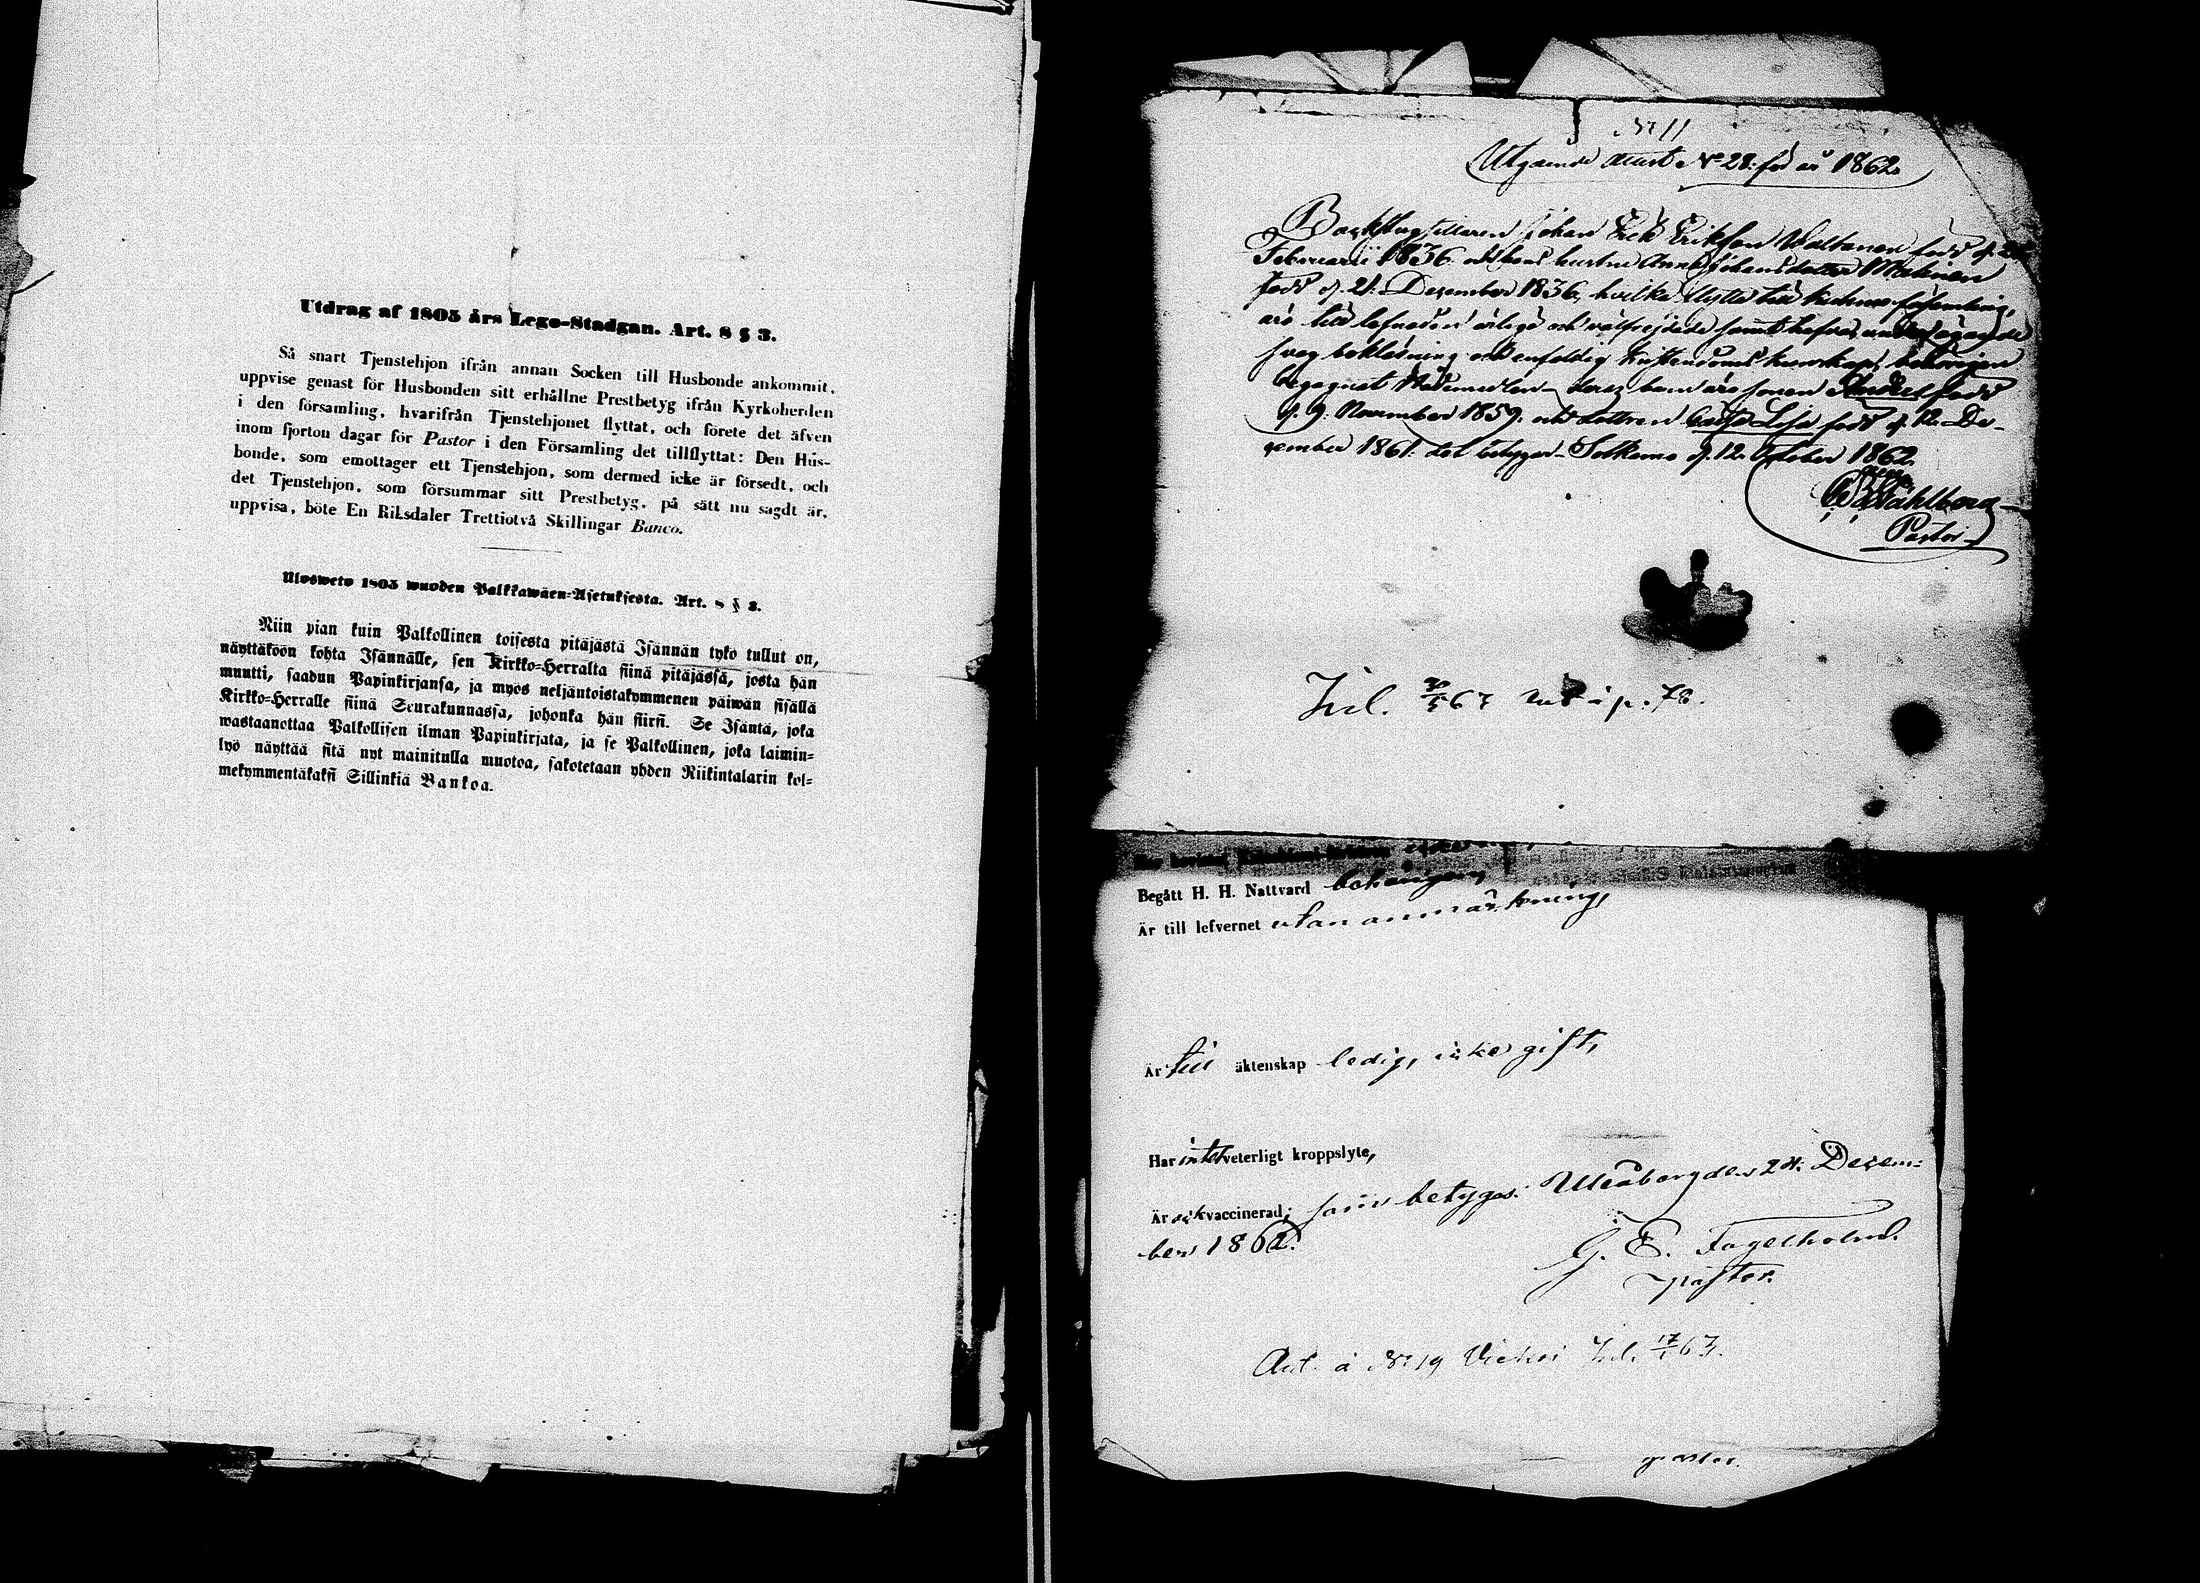 Utdrag af 1805 års Lego-Stadgan. Art. 8 § 3.
Så snart Tjenstehjon ifrån annan Socken till Husbonde ankommit,
uppvise genast för Husbonden sitt erhållne Prestbetyg ifrån Kyrkoherden
i den församling, hvarifrån Tjenstehjonet flyttat, och förete det äfven
inom fjorton dagar för Pastor i den Församling det tillflyttat: Den Hus-
bonde, som emottager ett Tjenstehjon, som dermed icke är försedt, och
det Tjenstehjon, som försummar sitt Prestbetyg, på sätt nu sagdt är,
uppvisa, böte En Riksdaler Trettiotvå Skillingar Banco.
Ulosweto 1805 wuoden Palkkawäen-Asetuksesta. Art. 8 § 3.
Niin pian kuin Palkollinen toisesta pitäjästä Isännän tykö tullut on,
näyttäköön kohta Isännälle, sen Kirkko-Herralta siinä pitäjässä, josta hän
muutti, saadun Papinkirjansa, ja myös neljäntoistakymmenen päiwän sisällä
Kirkko-Herralle siinä Seurakunnassa, johonka hän siirsi. Se Isäntä, joka
wastaanottaa Palkollisen ilman Papinkirjata, ja se Palkollinen, joka laimin-
lyö näyttää sitä nyt mainitulla muotoa, sakotetaan yhden Riikintalarin kol-
mekymmentäkaksi Sillinkiä Bankoa.
N:o 11
Utgående attest N:o 28. för år 1862.
Backstugsittaren Johan Erik Eriksson Waltanen född d.
Februarii 1836. och hans hustru Anna Johansdotter
född d. 21. December 1836, hvilka flytta till församling,
äro till lefnaden ärliga och välfrejdade samt hafva
svag bokläsning och enfaldig kristendoms kunskap,
begagnat Nådemedlen deras barn äro sonen född
d. 9. November 1859. och dottren Lisa född d. 12. De-
cember 1861. det betygar Sotkamo d. 12. October 1862.
Wahlberg
Pastor
Inl. 63 i p. 78.
Begått H. H. Nattvard behörigen,
Är till lefvernet utan anmärkning,
Är till äktenskap ledig, icke gift,
Har intet veterligt kroppslyte,
Är ock vaccinerad; som betygas. Uleåborg den 24. Decem-
ber 1862.
G. E. Fogelholm.
Pastor.
Ant. å N:o 19 Inl. 17/1 63.
pastor.